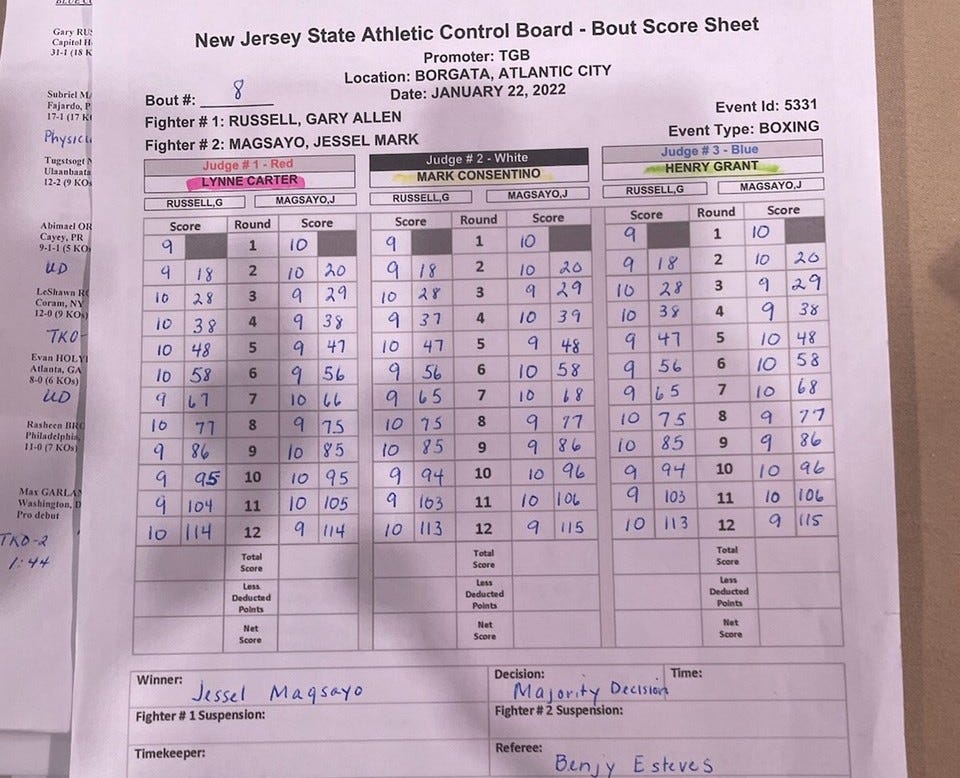 Gary
Capitol
31-1 (18
Subriel
Fajardo,
17-1 (17
Tugstsogt
Ulaanbaata
12-2 (9 KOs
Abimael
Cayey, PR
9-1-1 (5 KO
UD
LeShawn
Coram, NY
12-0 (9 KOs
TKO-
Evan
Atlanta, GA
8-0 (6 KOs)
UD
Rasheen
Philadelphia,
11-0 (7 KOs)
Max
Washington, D
Pro debut
TKO-2
1:44
New Jersey State Athletic Control Board - Bout Score Sheet
Promoter: TGB
Location: BORGATA, ATLANTIC CITY
Date: JANUARY 22, 2022
Bout #: 8
Event Id: 5331
Fighter # 1: RUSSELL, GARY ALLEN
Event Type: BOXING
Fighter # 2: MAGSAYO, JESSEL MARK
Judge # 1 - Red Judge # 2 - White Judge # 3 - Blue
LYNNE CARTER MARK CONSENTINO HENRY GRANT
RUSSELL,G MAGSAYO,J RUSSELL,G MAGSAYO,J RUSSELL,G MAGSAYO,J
Score Round Score Score Round Score Score Round Score
9 1 10 9 1 10 9 1 10
9 18 2 10 20 9 18 2 10 20 9 18 2 10 20
10 28 3 9 29 10 28 3 9 29 10 28 3 9 29
10 38 4 9 38 9 37 4 10 39 10 38 4 9 38
10 48 5 9 47 10 47 5 9 48 9 47 5 10 48
10 58 6 9 56 9 56 6 10 58 9 56 6 10 58
9 67 7 10 66 9 65 7 10 68 9 65 7 10 68
10 77 8 9 75 10 75 8 9 77 10 75 8 9 77
9 86 9 10 85 10 85 9 9 86 10 85 9 9 86
9 95 10 10 95 9 94 10 10 96 9 94 10 10 96
9 104 11 10 105 9 103 11 10 106 9 103 11 10 106
10 114 12 9 114 10 113 12 9 115 10 113 12 9 115
Total Total Total
Score Score Score
Less Less Less
Deducted Deducted Deducted
Points Points Points
Net Net Net
Score Score Score
Winner: Jessel Magsayo Decision: Majority Decision Time:
Fighter # 1 Suspension: Fighter # 2 Suspension:
Timekeeper: Referee: Benjy Esteves